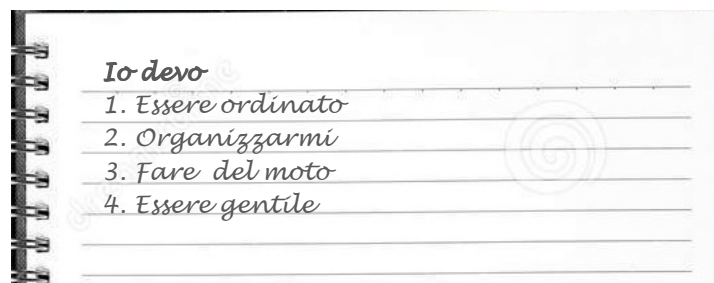 Io devo
1. Essere ordinato
2. Organizzarmi
3. Fare del moto
4. Essere gentile